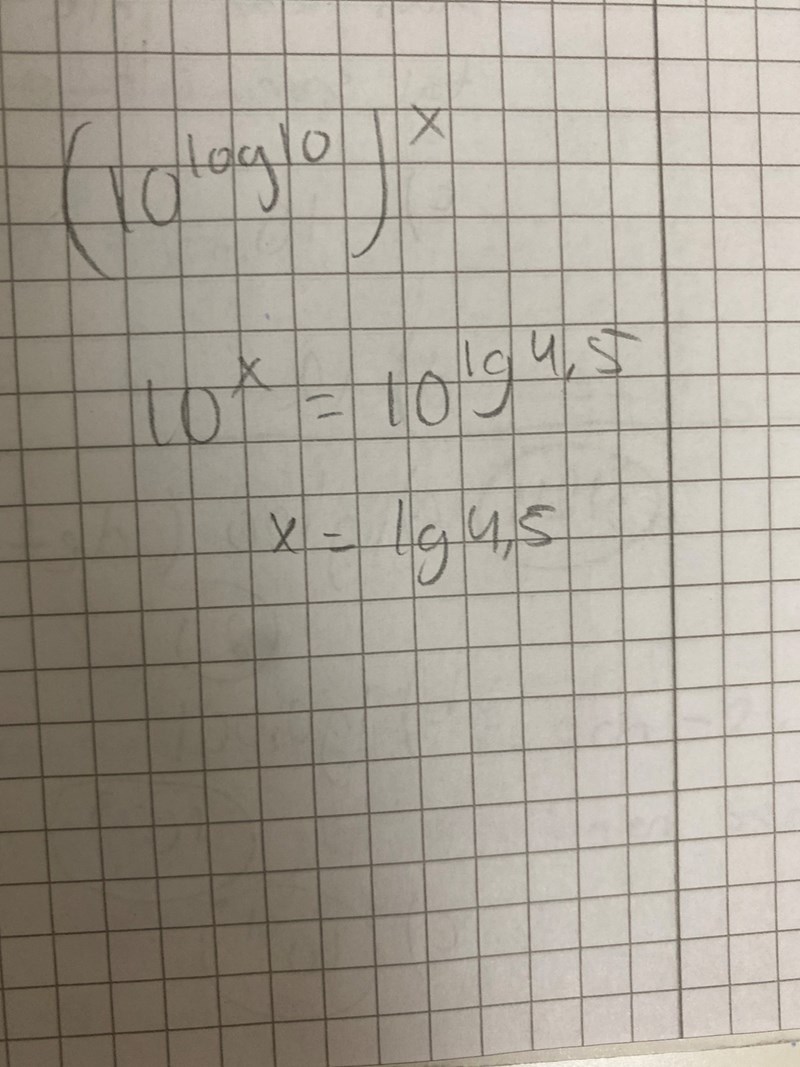 (10^log10)^x
10^x = 10^lg4,5
x = lg4,5